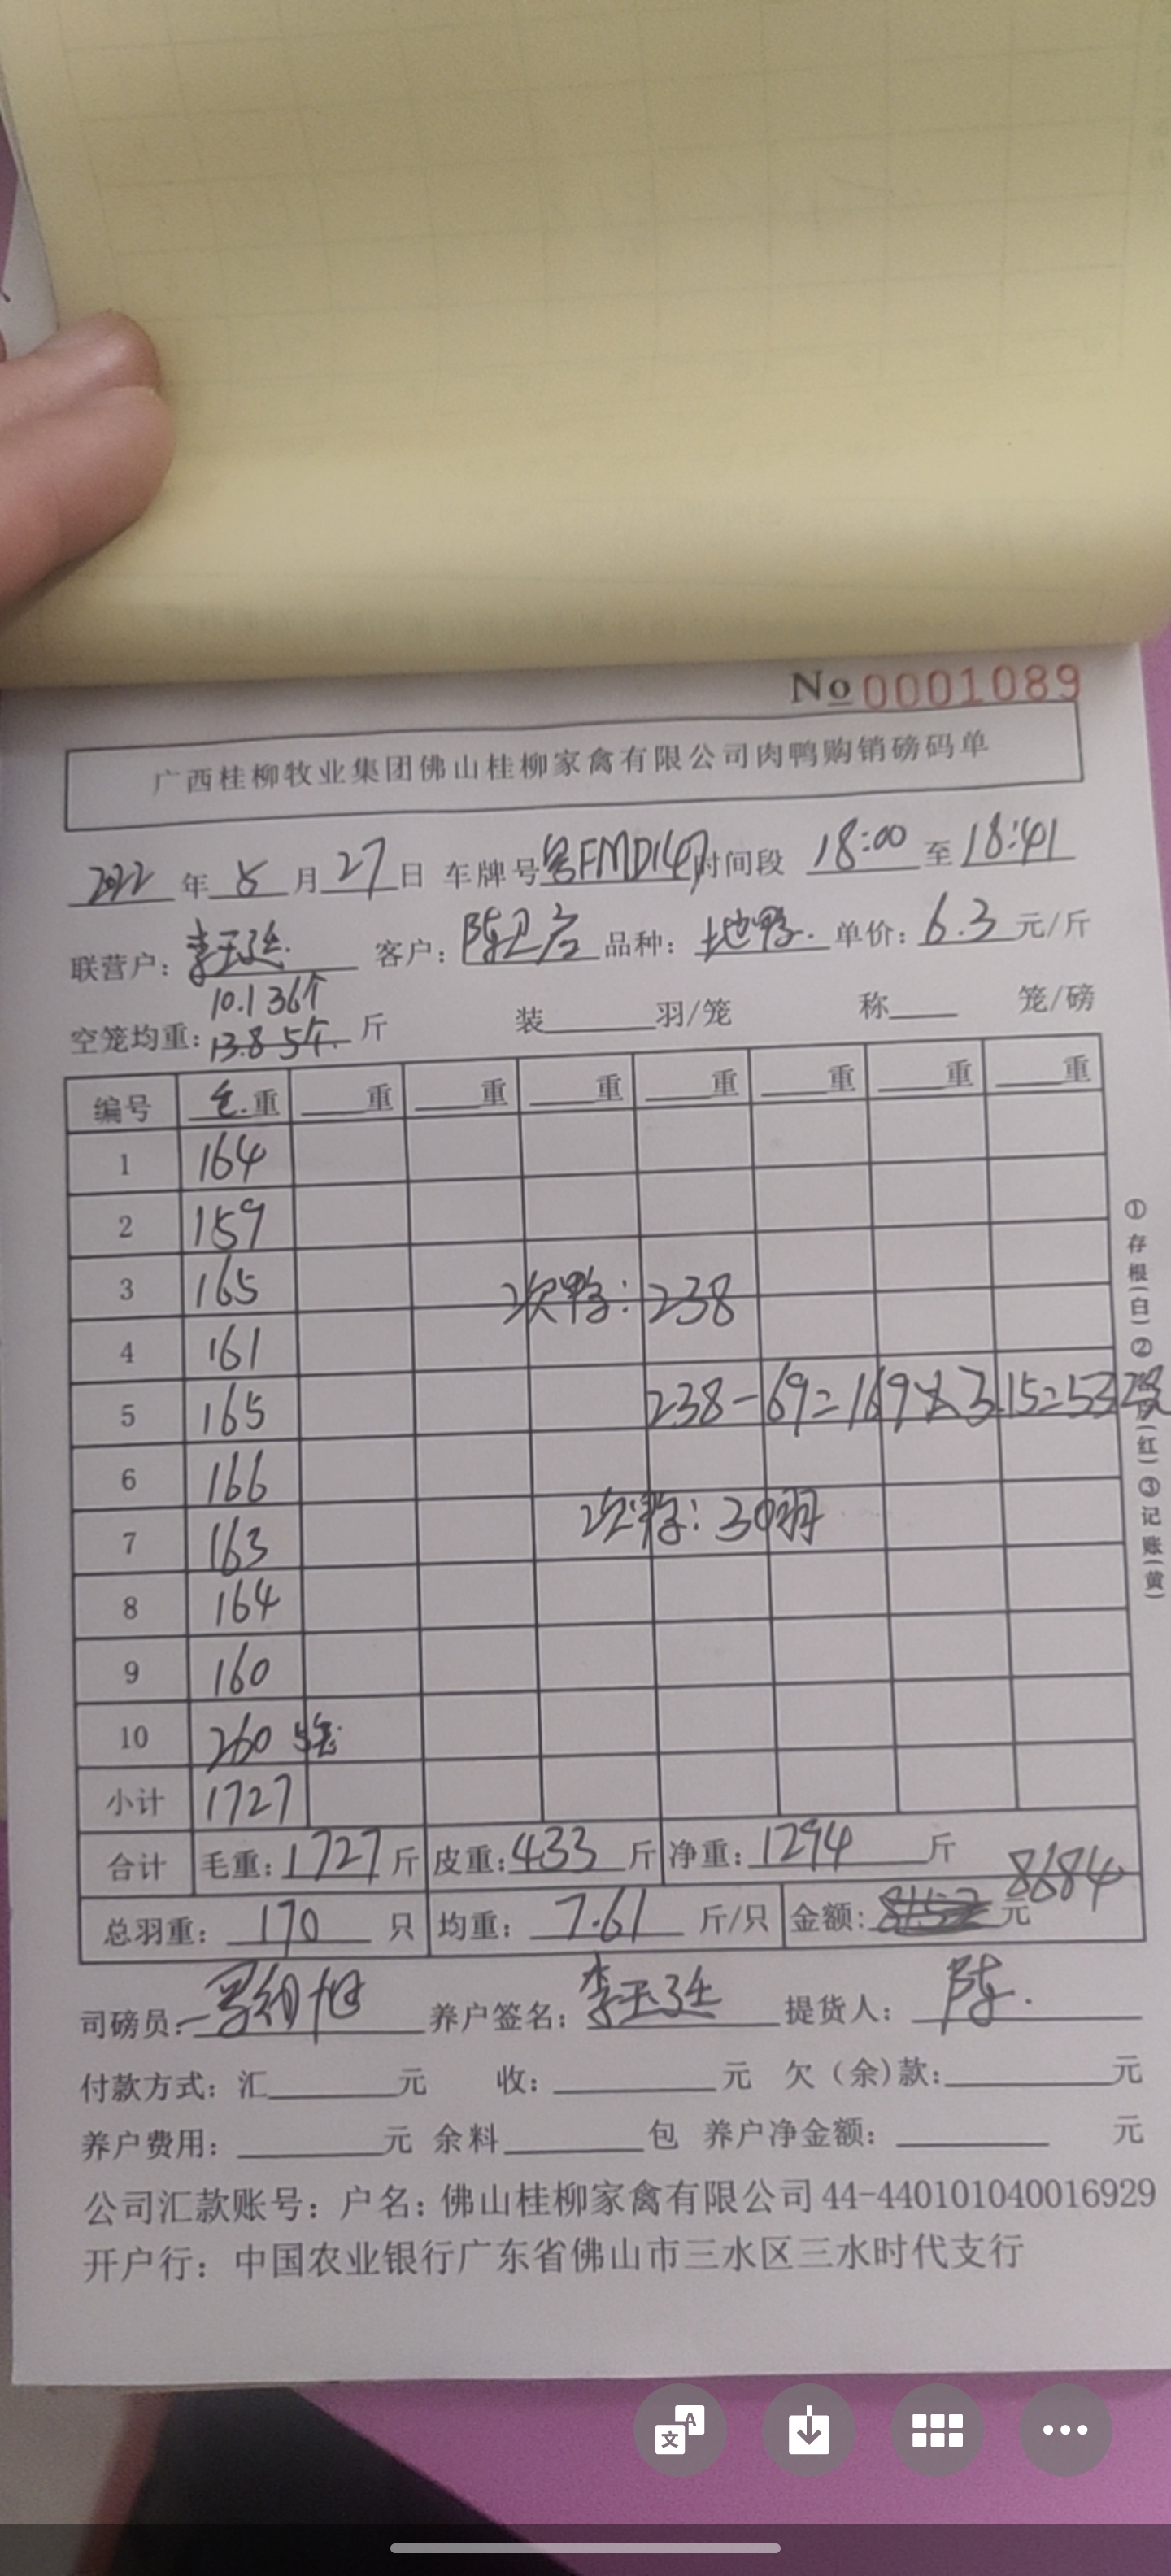 No 0001089
广西桂柳牧业集团佛山桂柳家禽有限公司肉鸭购销磅码单
2022年5月27日 车牌号粤FMD147时间段 18:00至18:41
联营户：李玉廷 客户：陈卫 品种：地鸭. 单价：6.3元/斤
10.1 36个
空笼均重：13.8 5个. 斤 装 羽/笼 称 笼/磅
编号 毛.重 重 重 重 重 重 重 重
1 164
2 159
3 165
次鸭：238
4 161
5 165 238-69=169×3.15=532
6 166
7 163 次鸭：30羽
8 164
9 160
10 260 5笼
小计 1727
合计 毛重：1727斤 皮重：433斤 净重：1294斤
总羽重：170只 均重：7.61斤/只 金额：元 8684
司磅员： 养户签名：李玉廷 提货人：陈.
付款方式：汇 元 收： 元 欠（余)款： 元
养户费用： 元 余料 包 养户净金额： 元
公司汇款账号：户名：佛山桂柳家禽有限公司 44-440101040016929
开户行：中国农业银行广东省佛山市三水区三水时代支行
①存根(白)②(红)③记账(黄)